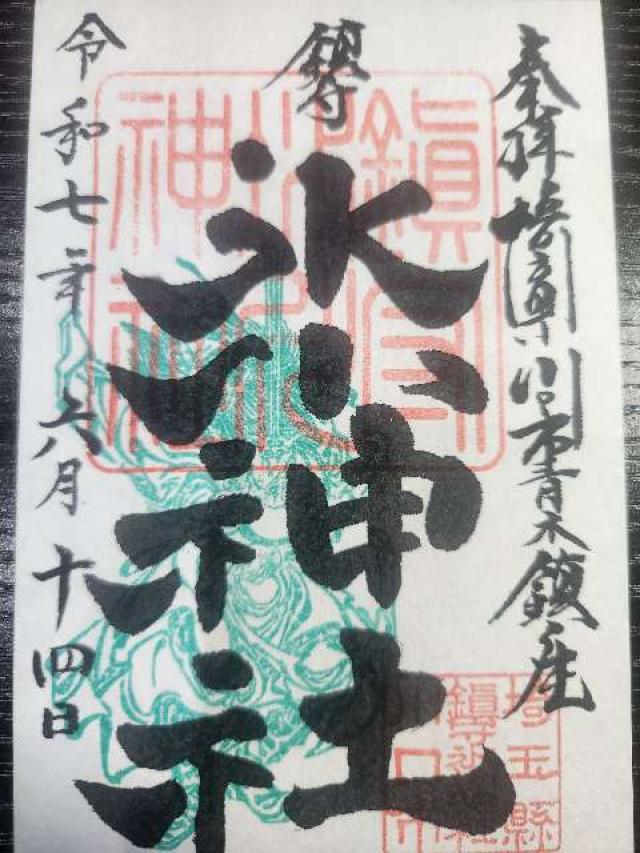 奉拝 埼玉県川口市青木鎮座
鎮守
氷川神社
令和七年六月十四日
鎮守
氷川
神社
埼玉縣